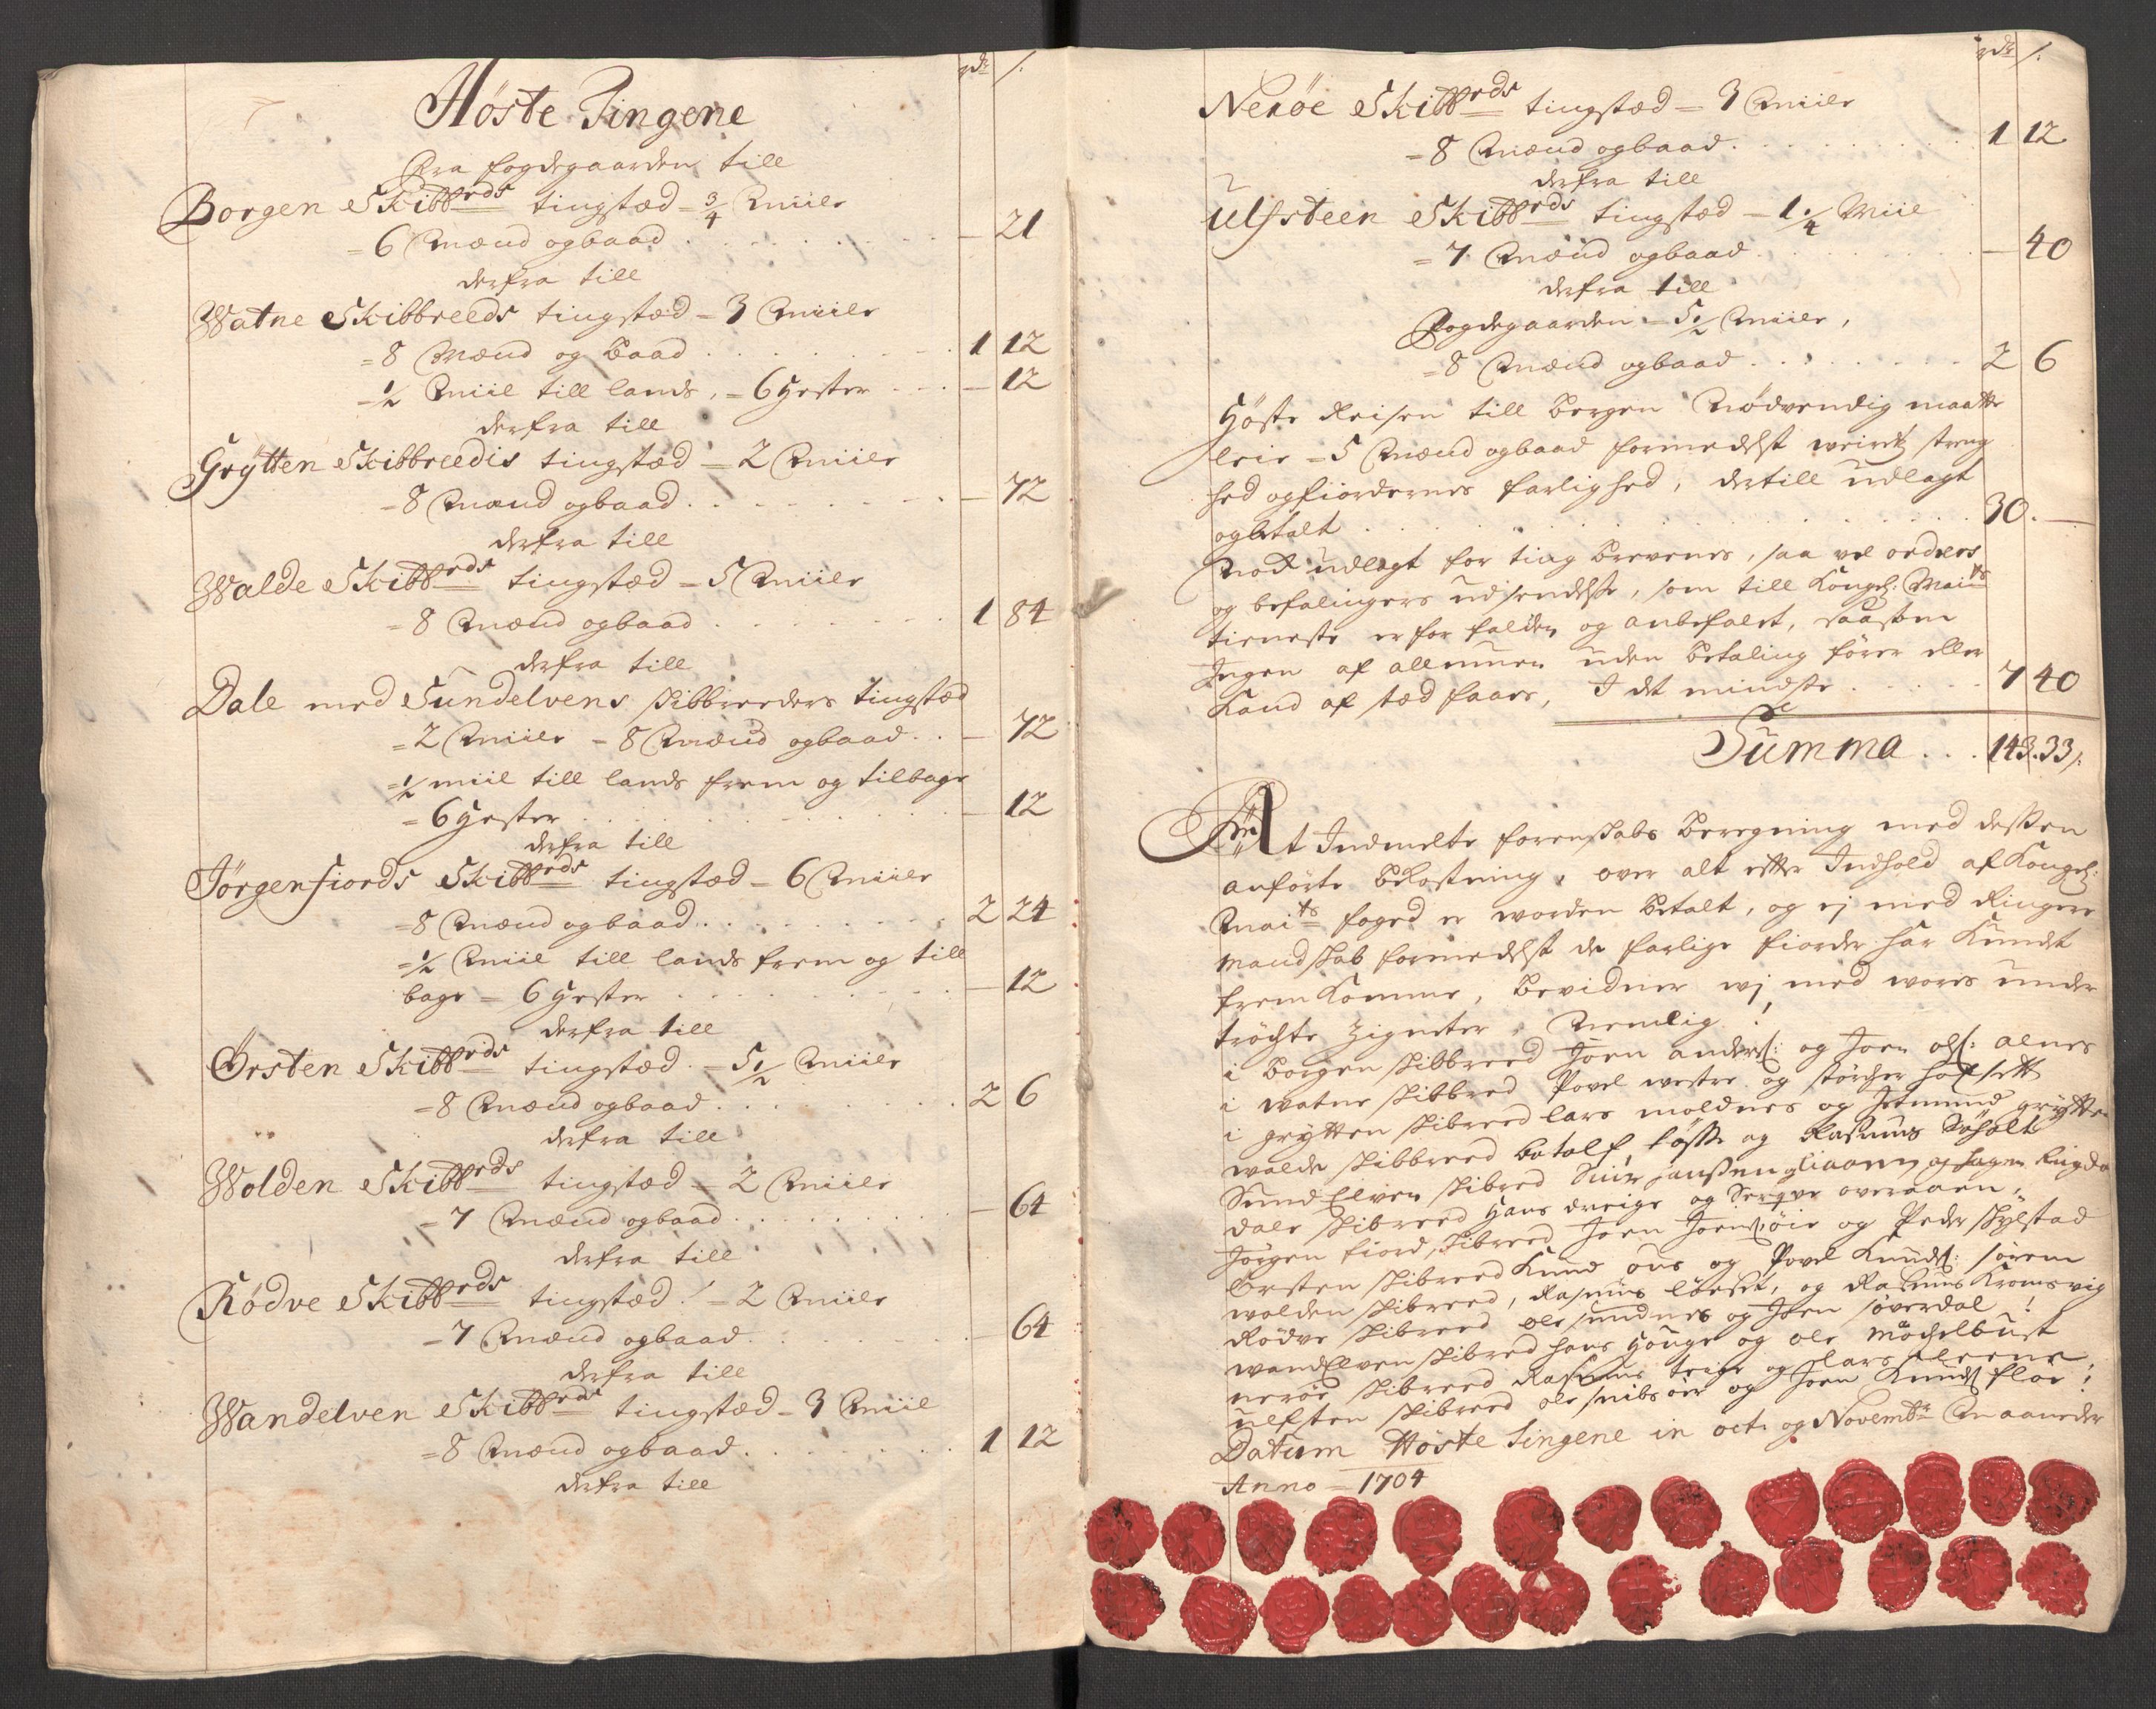 rdr s.
Høste Tingene
Fra fogdegaarden till
Borgen Skibbrds tingstæd = 3/4 Miile
= 6 Mænd og baad . . . . . — 21
derfra till
Watne Skibbreeds tingstæd = 3 Miile
= 8 Mænd og baad . . . . . 1 12
= 1/2 Miil till lands, = 6 Hester . . — 12
derfra till
Grÿtten Skibbreedis tingstæd = 2 Miile
= 8 Mænd og baad . . . . . — 72
derfra till
Walde Skibbrds tingstæd = 5 Miile
= 8 Mænd og baad . . . . . 1 84
derfra till
Dale med Sundelvens skibbreeders tingstæd
= 2 Miile = 8 Mænd og baad . . — 72
= 1/2 miil till lands frem og tilbage
= 6 Hester . . . . . — 12
derfra till
Jørgenfiords Skibbrds tingstæd = 6 Miile
= 8 Mænd og baad . . . . . 2 24
= 1/2 Miil till lands frem og till
bage = 6 Hester . . . . . — 12
derfra till
Ørsten Skibbrds tingstæd = 5 1/2 Miile
= 8 Mænd og baad . . . . . 2 6
derfra till
Wolden Skibbrds tingstæd = 2 Miile
= 7 Mænd og baad . . . . . — 64
derfra till
Rødve Skibbrds tingstæd = 2 Miile
= 7 Mænd og baad . . . . . 64
derfra till
Wandelven Skibbrds tingstæd = 3 Miil
= 8 Mænd og baad . . . . . 1 12
derfra till
rdr s.
Nerøe Skibbrds tingstæd = 3 Miile
= 8 Mænd og baad . . . . . 1 12
derfra till
Ulfsteen Skibbrds tingstæd = 1 1/4 Miil
= 7 Mænd og baad . . . . . — 40
derfra till
Fogdegaarden = 5 1/2 Miile,
= 8 Mænd og baad . . . . . 2 6
Høste Reisen till bergen Nødvendig maatte
leie = 5 Mænd og baad formedelst weirtz streng
hed og fiordernes farlighed, dertill udlagt
og betalt . . . . . 30. —
Nok udlagt for ting brevene, saa vel ordres
og befalingers udsendelse, som till Kongl: Maits
tieneste er for falden og anbefalet, saasom
Ingen af allmuen uden betaling fører eller
Kand af sted faaes, I det mindste . . . . . 7 40
Summa . . . 143. 33 s.
At Indmelte forenskabs beregning med dessen
anførte bekostning, over alt efter Indhold af Kongl:
Maits foged er worden betalt, og ej med Ringere
mandskab formedelst de farlige fiorder har Kundet
frem Komme, bevidner wj med wores under
trøchte Zigneter. Nemlig!
i borgen skibbreed Joen anders: og Joen ols: alnes
i watne skibbred Povel westre og størcher hofsett
i grytten skibreed lars moldnes og Jetmund grytten
walde skibbreed botolf løsse og Rasmus Søholt
Sund Elven skibred Siur hanssen og Hagen Ringdal
dale skibreed Hans dreige og overaaen,
Jørgen fiord skibreed Joen Joens: øie og Peder skylstad
Ørsten skibreed Knud aus og Povel Knuds: sørem
wolden skibreed, Rasmus løeset, og Rasmus Kromsvig
Rødve skibreed ole sundnes og Joen søverdal!
wandElven skibred hans Houge og ole møchelbust
nerøe skibreed Rasmus teige og lars
ulfsten skibreed ole snibsøer og Joen Knuds fløe!
Datum Høste tingene in octr og Novembr Maaneder
Anno = 1704